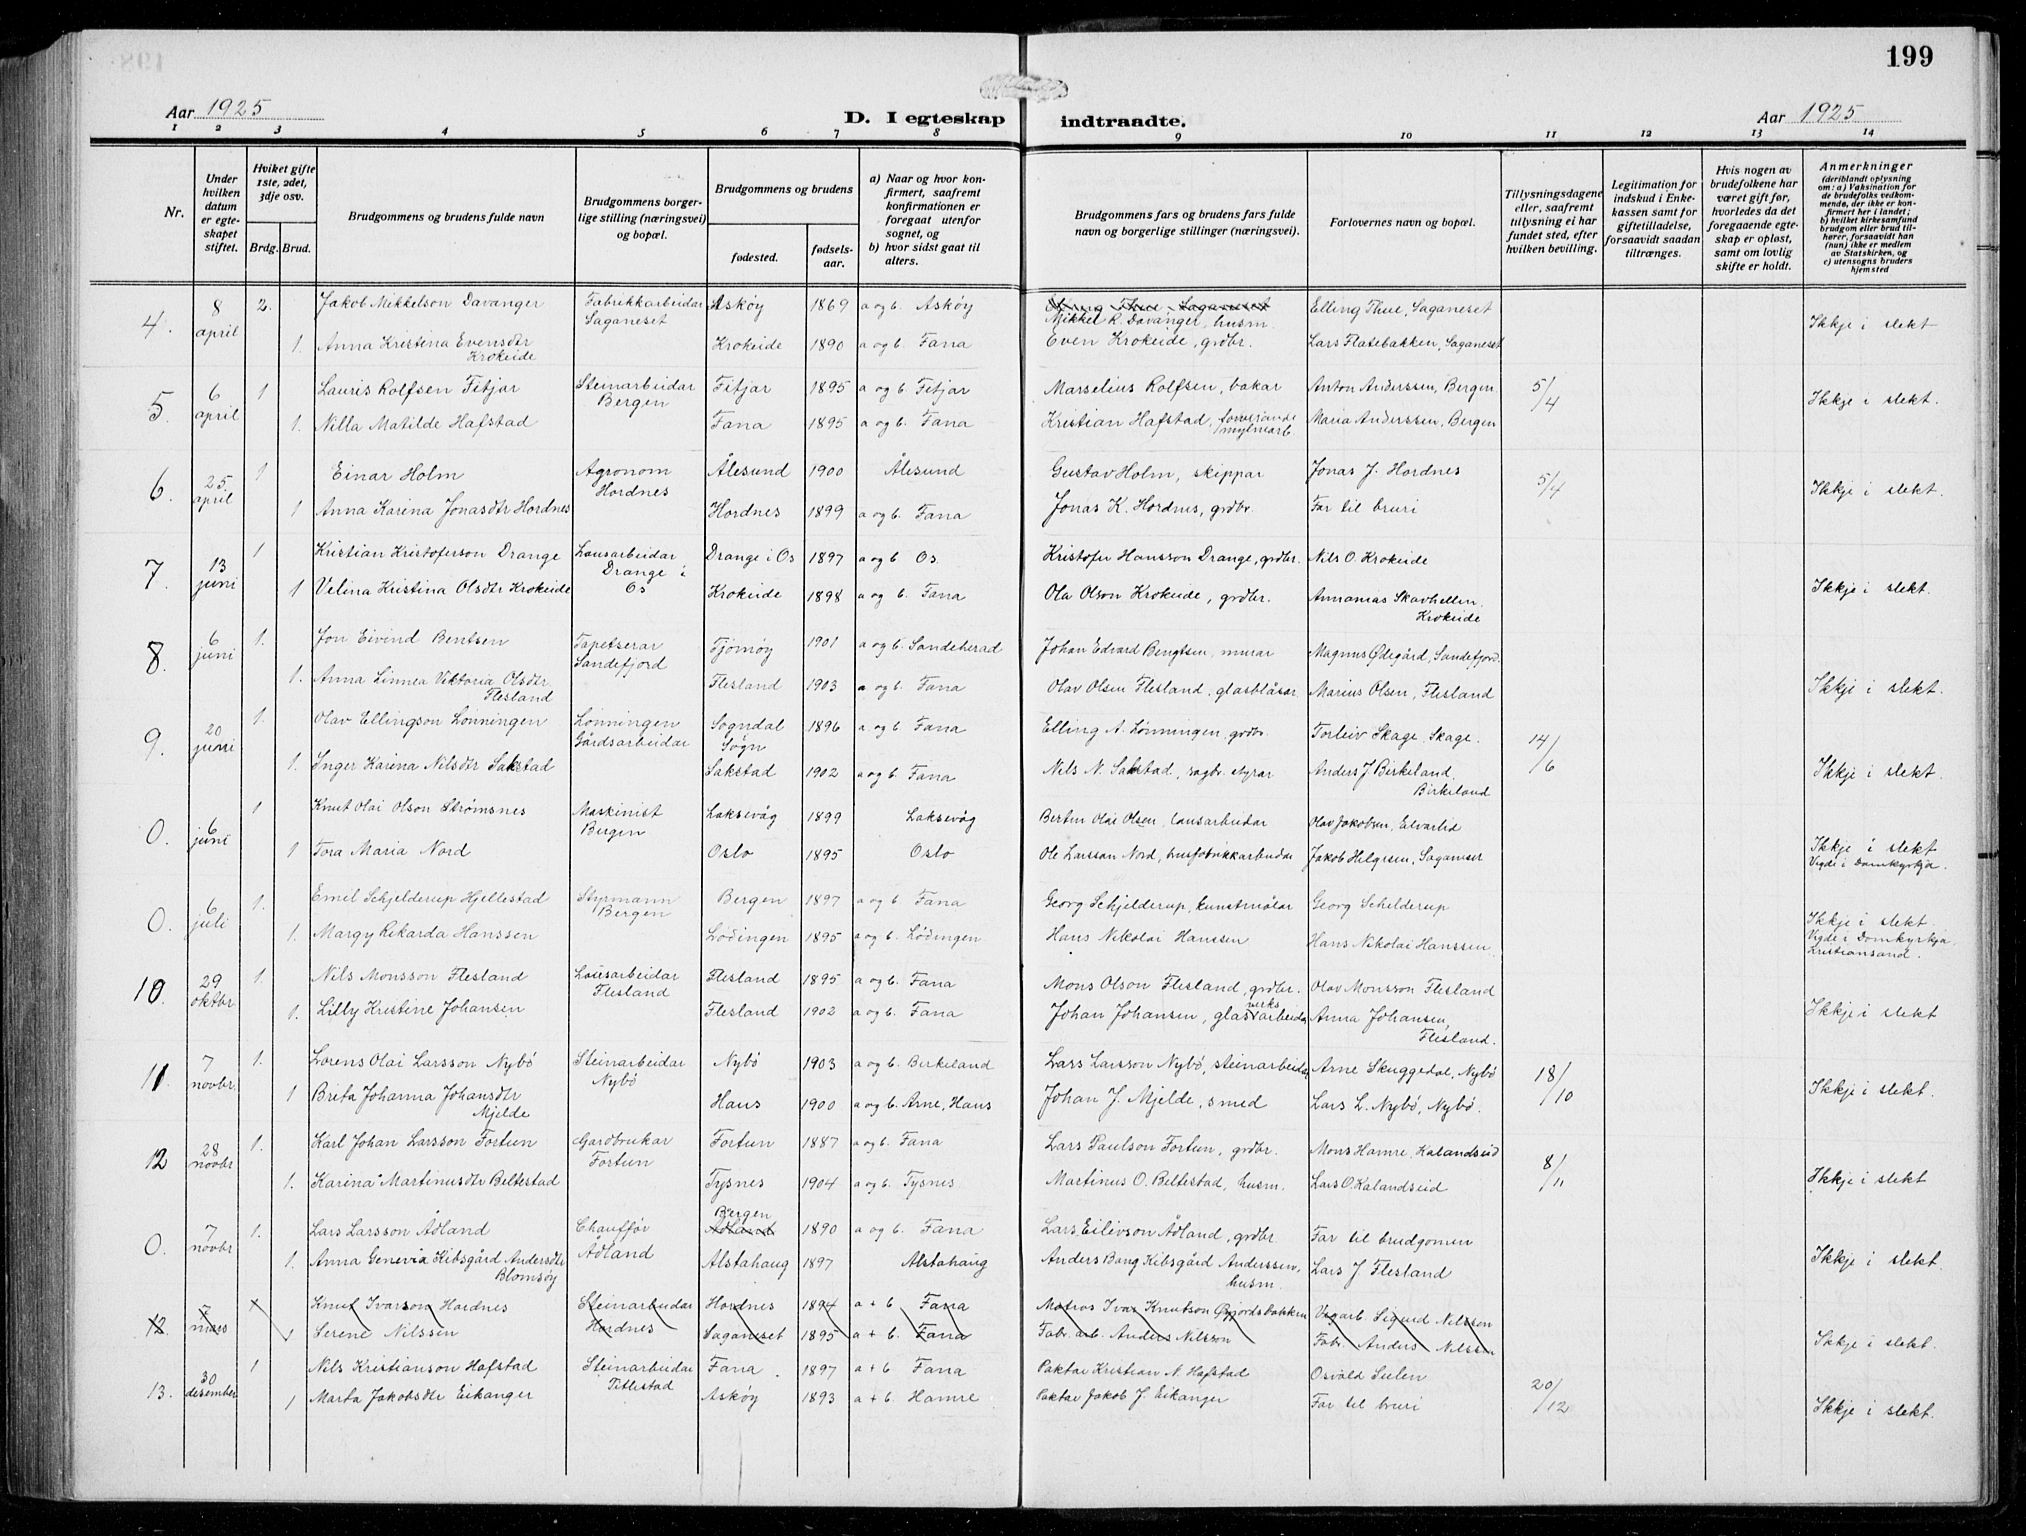 199
Aar 1925
D. I egteskap indtraadte.
Aar 1925
1 2 3 4 5 6 7 8 9 10 11 12 13 14
Nr.
Under hvilken datum er egteskapet stiftet.
Hviket gifte 1ste, 2det, 3dje osv.
Brdg. Brud.
Brudgommens og brudens fulde navn
Brudgommens borgerlige stilling (næringsvei) og bopæl.
Brudgommens og brudens
fødested.
fødselsaar.
a) Naar og hvor konfirmert, saafremt konfirmationen er foregaat utenfor sognet, og
b) hvor sidst gaat til alters.
Brudgommens fars og brudens fars fulde navn og borgerlige stillinger (næringsvei).
Forlovernes navn og bopæl.
Tillysningsdagene eller, saafremt tillysning ei har fundet sted, efter hvilken bevilling.
Legitimation for indskud i Enkekassen samt for giftetilladelse, forsaavidt saadan tiltrænges.
Hvis nogen av brudefolkene har været gift før, hvorledes da det foregaaende egteskap er opløst, samt om lovlig skifte er holdt.
Anmerkninger
(deriblandt oplysning om: a) Vaksination for de brudefolks vedkommende, der ikke er konfirmert her i landet; b) hvilket kirkesamfund brudgom eller brud tilhører, forsaavidt han (nun) ikke er medlem av Statskirken, og c) utensogns bruders hjemsted
4. 8 april 2. Jakob Mikkelson Davanger Fabrikkarbeidar Saganeset Askøy 1869 a og b. Askøy Mikkel R. Davanger, husm. Elling Thue, Saganeset Ikkje i slekt
1. Anna Kristina Evensdtr Krokeide Krokeide 1890 a og b. Fana Even Krokeide, grdbr. Lars Flatebakken, Saganeset
5. 6 april 1 Lauris Rolfsen Fitjar Steinarbeidar Bergen Fitjar 1895 a og b. Fitjar Marselius Rolfsen, bakar Anton Anderssen, Bergen 5/4 Ikkje i slekt.
1. Nilla Matilde Hafstad Fana 1895 a og b. Fana Kristian Hafstad, Maria Anderssen, Bergen
6. 25 april 1 Einar Holm Agronom Hordnes Ålesund 1900 Ålesund Gustav Holm, skippar Jonas J. Hordnes 5/4 Ikkje i slekt.
1 Anna Karina Jonasdtr Hordnes Hordnes 1899 a og b. Fana Jonas K. Hordnes, grdbr. Far til bruri
7. 13 juni 1 Kristian Kristoferson Drange Lausarbeidar Drange i Os Drange i Os 1897 a og b. Os. Kristofer Hansson Drange, grdbr. Nils O. Krokeide Ikkje i slekt.
1 Velina Kristina Olsdtr Krokeide Krokeide 1898 a og b. Fana Ola Olson Krokeide, grdbr. Annanias Skavhellen, Krokeide
8. 6 juni 1. Jon Eivind Bentsen Tapetserar Sandefjord Tjømøy 1901 a og b. Sandeherad Johan Edvard Bengtsen, murar Magnus Ødegård, Sandefjord. Ikkje i slekt.
1. Anna Linnea Viktoria Olsdtr Flesland Flesland 1903 a og b. Fana Olav Olsen Flesland, glasblåsar. Marius Olsen, Flesland
9. 20 juni 1. Olav Ellingson Lønningen Lønningen Gårdsarbeidar Sogndal Sogn 1896 a. og b. Fana Elling A. Lønningen, grdbr. Torleiv Skage, Skage. 14/6 Ikkje i slekt.
1. Inger Karina Nilsdtr Sakstad Sakstad 1902 a og b. Fana Nils N. Sakstad, sagbr. styrar Anders J Birkeland, Birkeland
0. 6 juni 1 Knut Olai Olson Strømsnes Maskinist Bergen Laksevåg 1899 Laksevåg Bertin Olai Olsen, lausarbeidar Olav Jakobsen, Eivarlid Ikkje i slekt Vigde i Domkyrkja.
1 Tora Maria Nord Oslo 1895 Oslo Ole Larsson Nord, husfabrikkarbeidar Jakob Helgesen, Saganeset
0. 6 juli 1. Emil Schjelderup Hjellestad Styrmann Bergen Bergen 1897 a og b. Fana Georg Schjelderup, kunstmålar Georg Schelderup Ikkje i slekt. Vigde i Domkyrkja. Kristiansand.
1. Margy Rikarda Hanssen Lødingen 1895 a og b. Lødingen Hans Nikolai Hanssen Hans Nikolai Hanssen
10. 29 oktbr 1. Nils Monsson Flesland Lausarbeidar Flesland Flesland 1895 a og b. Fana Mons Olson Flesland, grdbr. Olav Monsson Flesland Ikkje i slekt
1. Lilly Kristine Johansen Flesland 1902 a og b. Fana Johan Johansen, glasverksarbeidar Anna Johansen, Flesland.
11. 7 novbr. 1. Lorens Olai Larsson Nybø Steinarbeidar Nybø Nybø 1903 a og b. Birkeland Lars Larsson Nybø, steinarbeidar Arne Skuggedal, Nybø 18/10 Ikkje i slekt.
1 Brita Johanna Johansdtr Mjelde Haus 1900 a og b. Arne, Haus Johan J. Mjelde, smed Lars L. Nybø, Nybø.
12 28 novbr 1. Karl Johan Larsson Fortun Gardbrukar Fortun Fortun 1887 a og b. Fana Lars Paulson Fortun, grdbr. Mons Hamre, Kalandseid 8/11 Ikkje i slekt
1. Karina Martinusdtr Beltestad Tysnes 1904 a og b. Tysnes Martinus O. Beltestad, husm. Lars O. Kalandseid
0. 7 novbr 1. Lars Larsson Ådland Chauffør Ådland Bergen Ådland 1890 a og b. Fana Lars Eilivson Ådland, grdbr. Far til brudgomen Ikkje i slekt.
1. Anna Genevia Kibsgård Andersdtr Blomsøy Alstahaug 1897 Alstahaug Anders Bang Kibsgård Anderssen, husm. Lars J Flesland
12. 7 mars 1 Knut Ivarson Hordnes Steinarbeidar Hordnes Hordnes 1894 a + b. Fana Matros Ivar Knutson Vegarb Sigurd Nilssen Ikkje i slekt
1 Serene Nilssen Saganeset 1895 a + b. Fana Fabr. arb. Anders Nilsson Fabr. Anders Nilssen
13. 30 desember 1 Nils Kristianson Hafstad Steinarbeidar Titlestad Fana 1897 a + b Fana Paktar Kristian N. Hafstad Osvald Sælen 20/12 Ikkje i slekt.
1 Marta Jakobsdtr Eikanger Askøy 1893 a + b. Hamre Paktar Jakob J. Eikanger Far til bruri